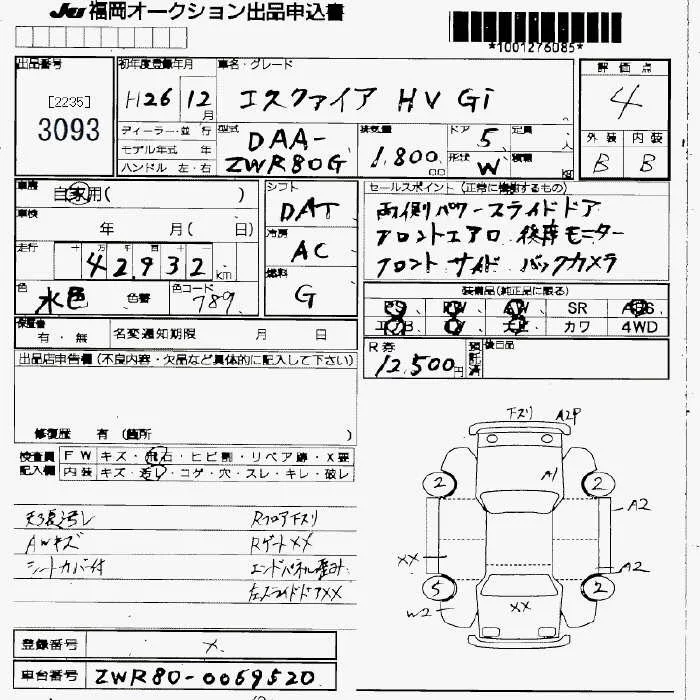 JU 福岡オークション出品申込書
*1001276085*
出品番号
[2235]
3093
初年度登録年月
H26 12 月
車名・グレード
エスクァイア HV Gi
評価点
4
外装 内装
B B
ディーラー・並行
モデル年式 年
ハンドル 左・右
型式
DAA-
ZWR80G
排気量
1,800.
cc
ドア
5
定員
人
形状
W
積載
kg
車歴
自家用( )
車検
年 月( 日)
走行
十 万 千 百 十
42,932 km
色
水色
色替
色コード
789
シフト
DAT
冷房
AC
燃料
G
セールスポイント (正常に機動するもの)
両側パワースライドドア
フロントエアロ 後席モニター
フロント サイド バックカメラ
装備品(純正品に限る)
PS、 PW、 AW、 SR ABS
エアB TV、 ナビ カワ 4WD
保証書
有・無
名変通知期限 月 日
R券
12,500円
預託済
後日品
出品店申告欄 (不良内容・欠品など具体的に記入して下さい)
修復歴 有 (箇所 )
検査員
記入欄
FW キズ・飛石・ヒビ割・リペア跡・X要
内装 キズ・汚レ・コゲ・穴・スレ・キレ・破レ
天張汚レ
AWキズ
シートカバー付
Rフロア下スリ
Rゲート XX
エンドパネル歪ミ
左スライドドア XX
下スリ
A2P
A1
2
2
A2
XX
A2
5
2
W2
XX
登録番号
×
車台番号
ZWR80-0069520